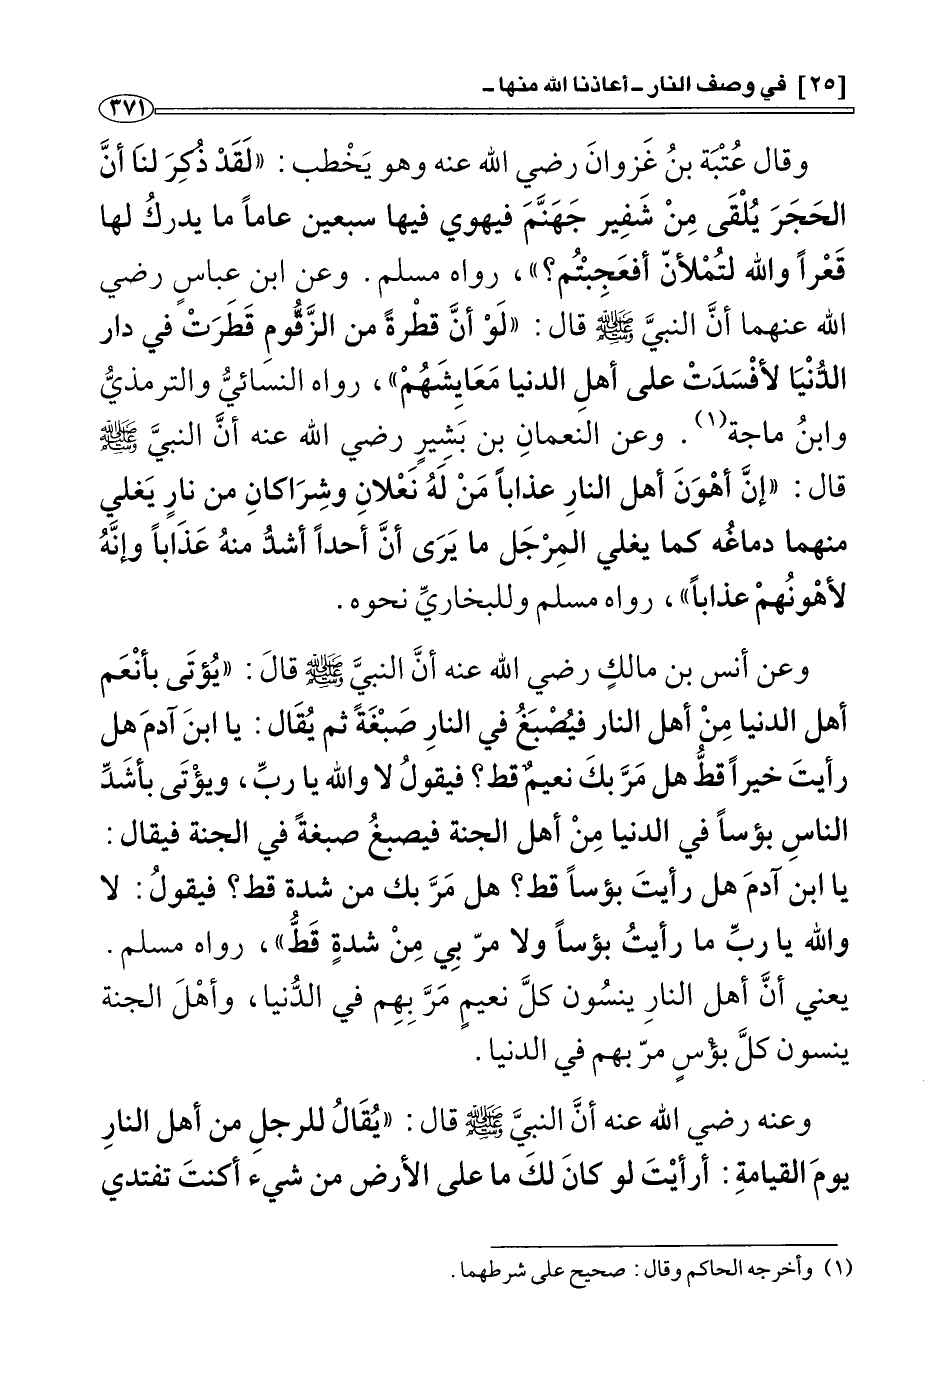 [٢٥] في وصف النار ـ أعاذنا الله منها ـ
٣٧١
وقال عُتْبَة بنُ غَزوانَ رضي الله عنه وهو يَخْطب: «لَقَدْ ذُكِرَ لنا أنَّ
الحَجَرَ يُلْقَى مِنْ شَفِير جَهَنَّمَ فيهوي فيها سبعين عاماً ما يدركُ لها
قَعْراً والله لتُمْلأنّ أفعَجِبتُم؟»، رواه مسلم. وعن ابن عباسٍ رضي
الله عنهما أنَّ النبيَّ ﷺ قال: «لَوْ أنَّ قطْرةً من الزَّقُّوم قَطَرَتْ في دار
الدُّنْيَا لأفْسَدَتْ على أهلِ الدنيا مَعَايشَهُمْ»، رواه النسَائيُّ والترمذيُّ
وابنُ ماجة(١). وعن النعمانِ بن بَشِيرٍ رضي الله عنه أنَّ النبيَّ ﷺ
قال: «إنَّ أهْوَنَ أهل النارِ عذاباً مَنْ لَهُ نَعْلانِ وشِرَاكانِ من نارٍ يَغلي
منهما دماغُه كما يغلي المِرْجَل ما يَرَى أنَّ أحداً أشدُّ منهُ عَذَاباً وإنَّهُ
لأهْونُهمْ عذاباً»، رواه مسلم وللبخاريِّ نحوه.
وعن أنس بن مالكٍ رضي الله عنه أنَّ النبيَّ ﷺ قالَ: «يُؤتَى بأنْعَم
أهل الدنيا مِنْ أهل النار فيُصْبَغُ في النارِ صَبْغَةً ثم يُقَال: يا ابنَ آدمَ هل
رأيتَ خيراً قطُّ هل مَرَّ بكَ نعيمٌ قط؟ فيقولُ لا والله يا ربِّ، ويؤْتَى بأشَدِّ
الناسِ بؤساً في الدنيا مِنْ أهل الجنة فيصبغُ صبغةً في الجنة فيقال:
يا ابن آدمَ هل رأيتَ بؤساً قط؟ هل مَرَّ بك من شدة قط؟ فيقولُ: لا
والله يا ربِّ ما رأيتُ بؤساً ولا مرّ بِي مِنْ شدةٍ قَطُّ»، رواه مسلم.
يعني أنَّ أهل النارِ ينسُون كلَّ نعيمٍ مَرَّ بِهِم في الدُّنيا، وأهْلَ الجنة
ينسون كلَّ بؤْسٍ مرّ بهم في الدنيا.
وعنه رضي الله عنه أنَّ النبيَّ ﷺ قال: «يُقَالُ للرجلِ من أهل النارِ
يومَ القيامةِ: أرأيْتَ لو كانَ لكَ ما على الأرض من شيء أكنتَ تفتدي
(١) وأخرجه الحاكم وقال: صحيح على شرطهما.